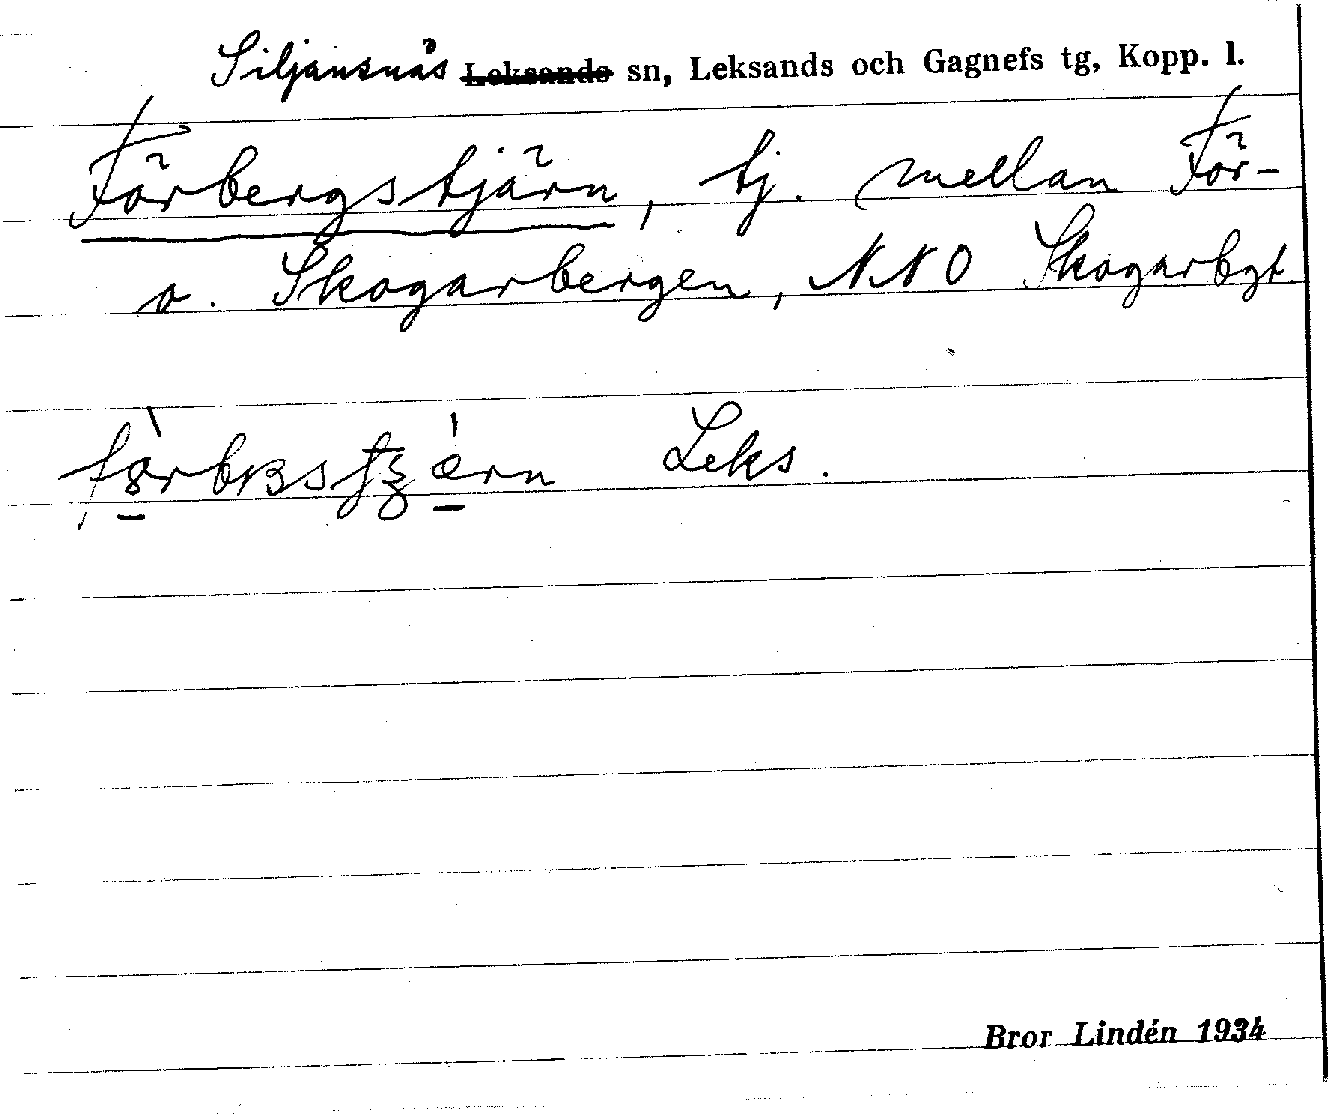 Siljansnäs Leksands sn, Leksands och Gagnefs tg, Kopp. l.
Förbergstjärn, tj. mellan För-
o. Skogarbergen, NNO Skogarbgt
Leks.
Bror Lindén 1934